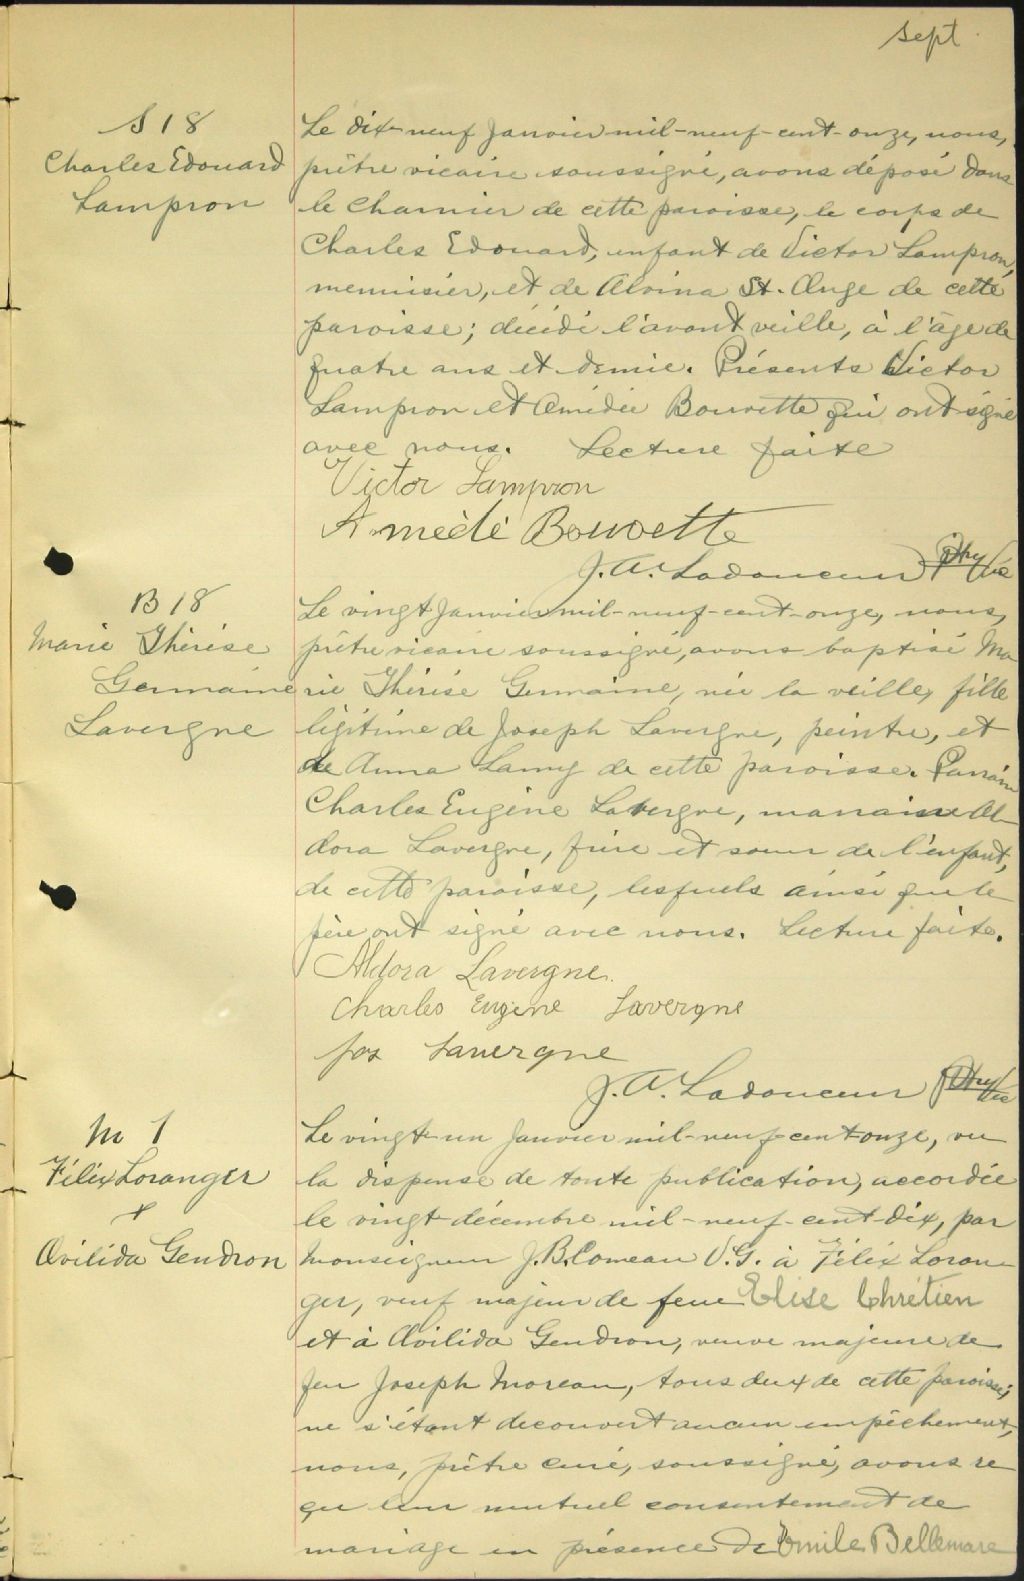 sept
S 18
Charles Edouard
Lampron
Le dix-neuf Janvier mil-neuf-cent-onze, nous,
prêtre vicaire soussigné, avons déposé dans
le Charnier de cette paroisse, le corps de
Charles Edouard, enfant de Victor Lampron,
menuisier, et de Alvina St. Ange de cette
paroisse; décédé l'avant veille, à l'âge de
quatre ans et demie. Présents Victor
Lampron et Amédée Bouvette qui ont signé
avec nous. Lecture faite
Victor Lampron
Amédé Bouvette
J. A. Ladouceur Ptre Vic
B 18
Marie Thérèse
Germaine
Lavergne
Le vingt Janvier mil-neuf-cent-onze, nous,
prêtre vicaire soussigné, avons baptisé Ma
rie Thérèse Germaine, née la veille, fille
légitime de Joseph Lavergne, peintre, et
de Anna Lamy de cette paroisse. Parrain
Charles Eugène Lavergne, marraine Al-
dora Lavergne, frère et soeur de l'enfant,
de cette paroisse, lesquels ainsi que le
père ont signé avec nous. Lecture faite.
Aldora Lavergne.
Charles Eugène Lavergne
Jos Lavergne
J. A. Ladouceur Ptre Vic
M 1
Félix Loranger
+
Avilida Gendron
Le vingt-un Janvier mil-neuf-cent onze, vu
la dispense de toute publication, accordée
le vingt décembre mil-neuf-cent-dix, par
Monseigneur J.B. Comeau V.G. à Félix Loran-
ger, veuf majeur de feue Elise Chrétien
et à Avilida Gendron, veuve majeure de
feu Joseph Moreau, tous deux de cette paroisse;
ne s'étant decouvert aucun empêchement,
nous, prêtre curé, soussigné, avons re
çu leur mutuel consentement de
mariage en présence de Emile Bellemare